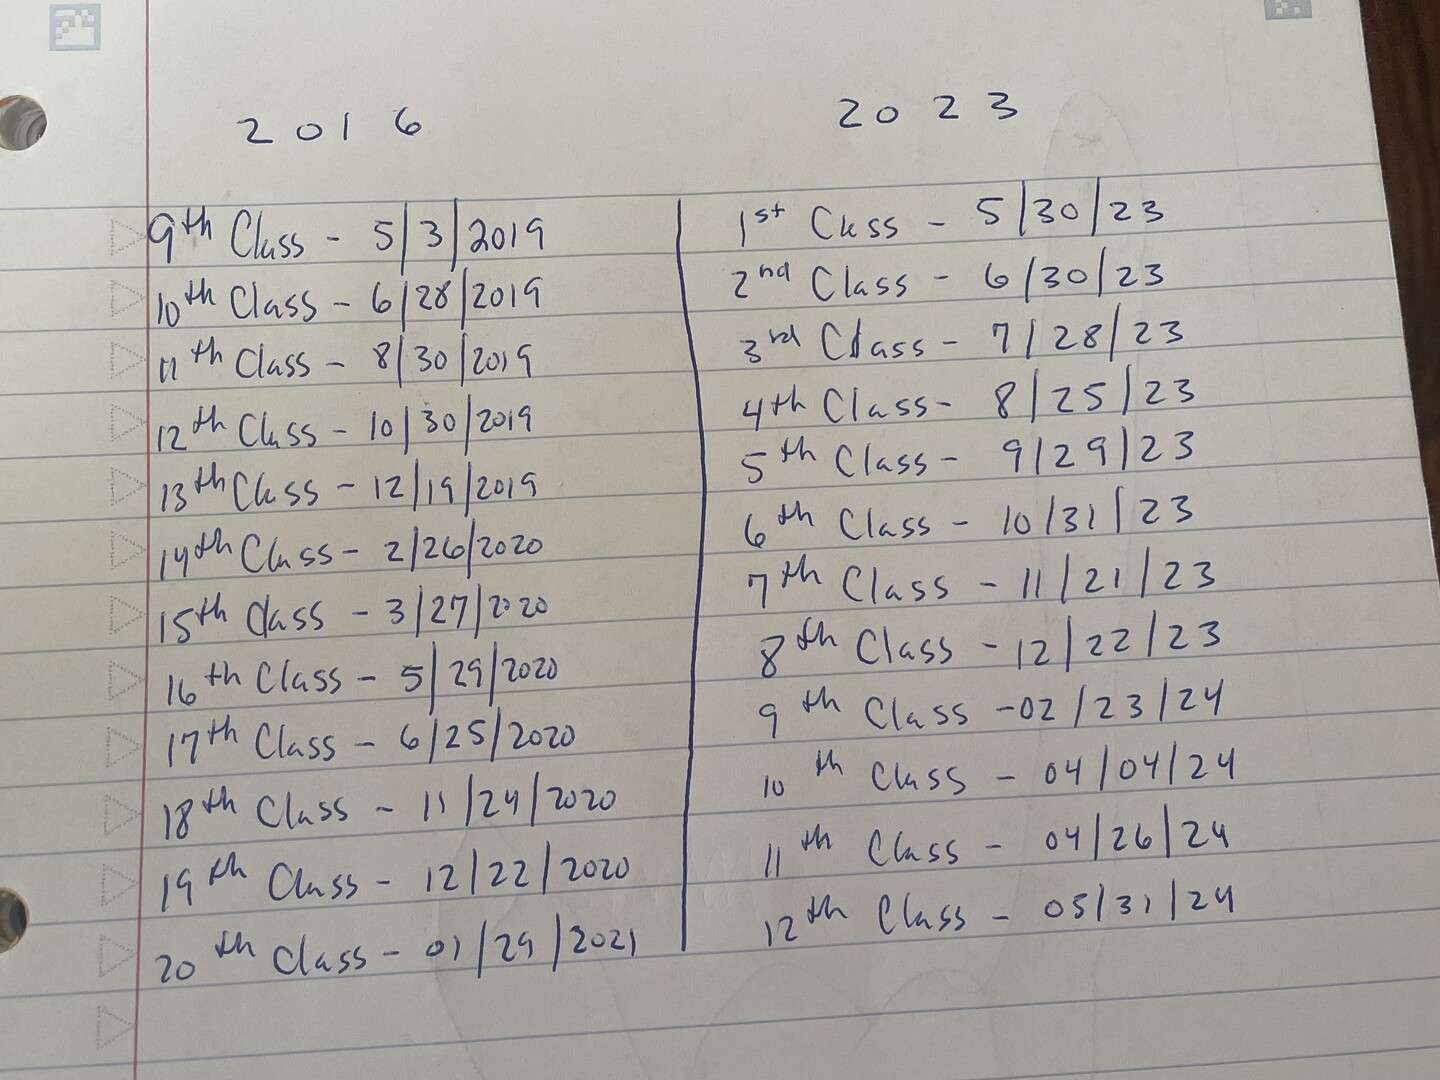 2016
9th Class - 5/3/2019
10th Class - 6/28/2019
11th Class - 8/30/2019
12th Class - 10/30/2019
13th Class - 12/19/2019
14th Class - 2/26/2020
15th Class - 3/27/2020
16th Class - 5/29/2020
17th Class - 6/25/2020
18th Class - 11/24/2020
19th Class - 12/22/2020
20th Class - 01/29/2021
2023
1st Class - 5/30/23
2nd Class - 6/30/23
3rd Class - 7/28/23
4th Class - 8/25/23
5th Class - 9/29/23
6th Class - 10/31/23
7th Class - 11/21/23
8th Class - 12/22/23
9th Class - 02/23/24
10th Class - 04/04/24
11th Class - 04/26/24
12th Class - 05/31/24